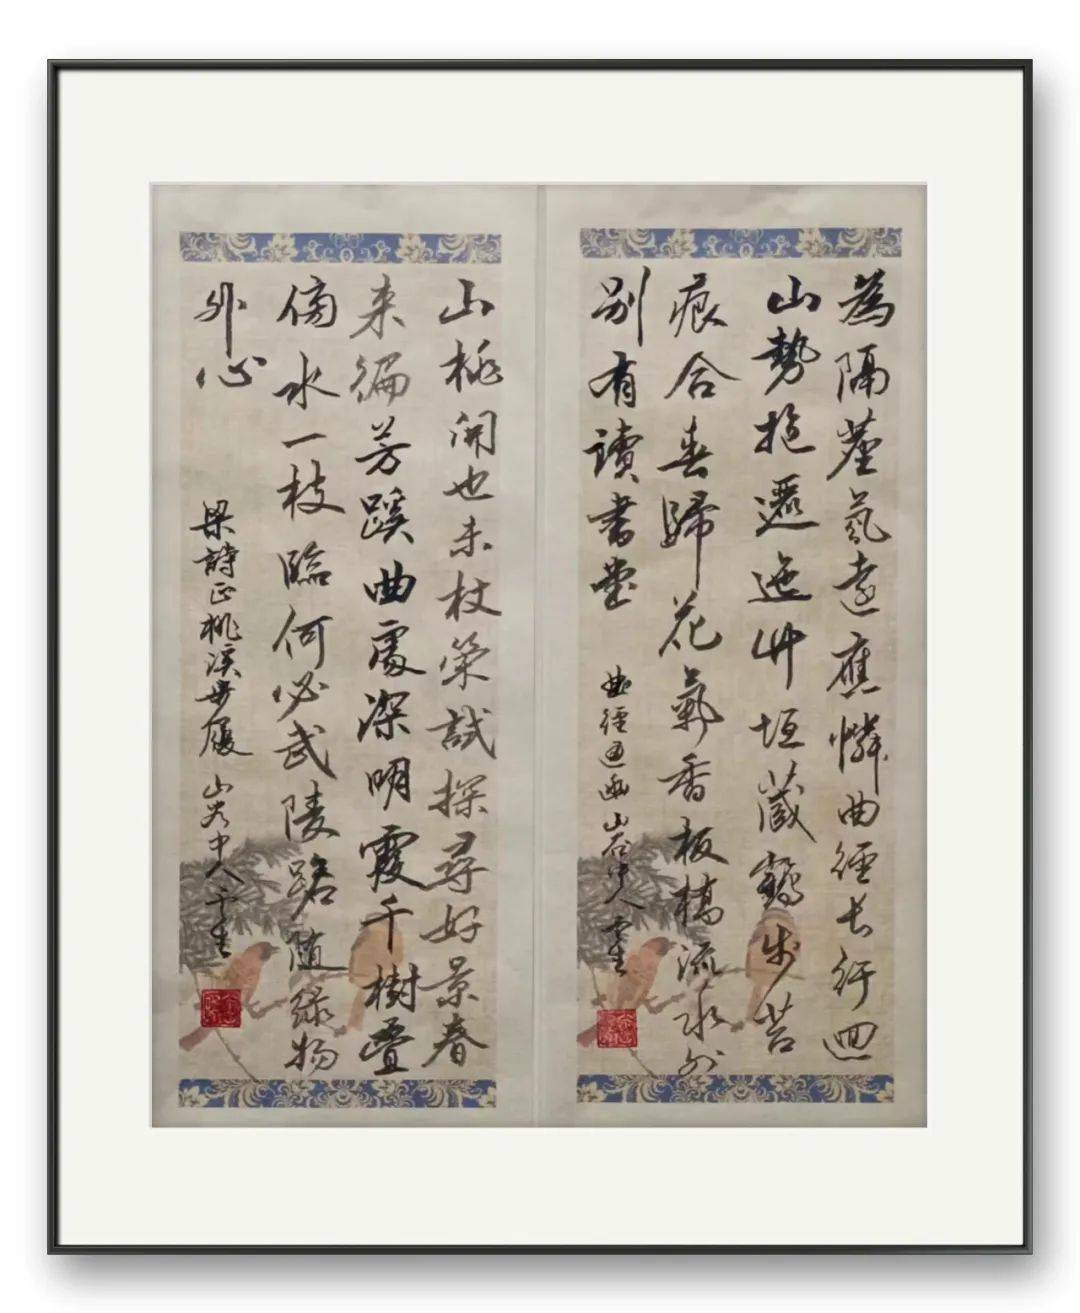 為隔塵氛遠應憐曲徑長行迴
山勢抱邐迤竹垣藏鶴步苔
痕合春歸花氣香板橋流水外
別有讀書堂
曲徑通幽 山谷中人雲生
山桃開也未杖策試探尋好景春
来徧芳蹊曲處深明霞千樹疊
傍水一枝臨何必武陵路隨緣物
外心
梁詩正桃溪步履 山谷中人雲生